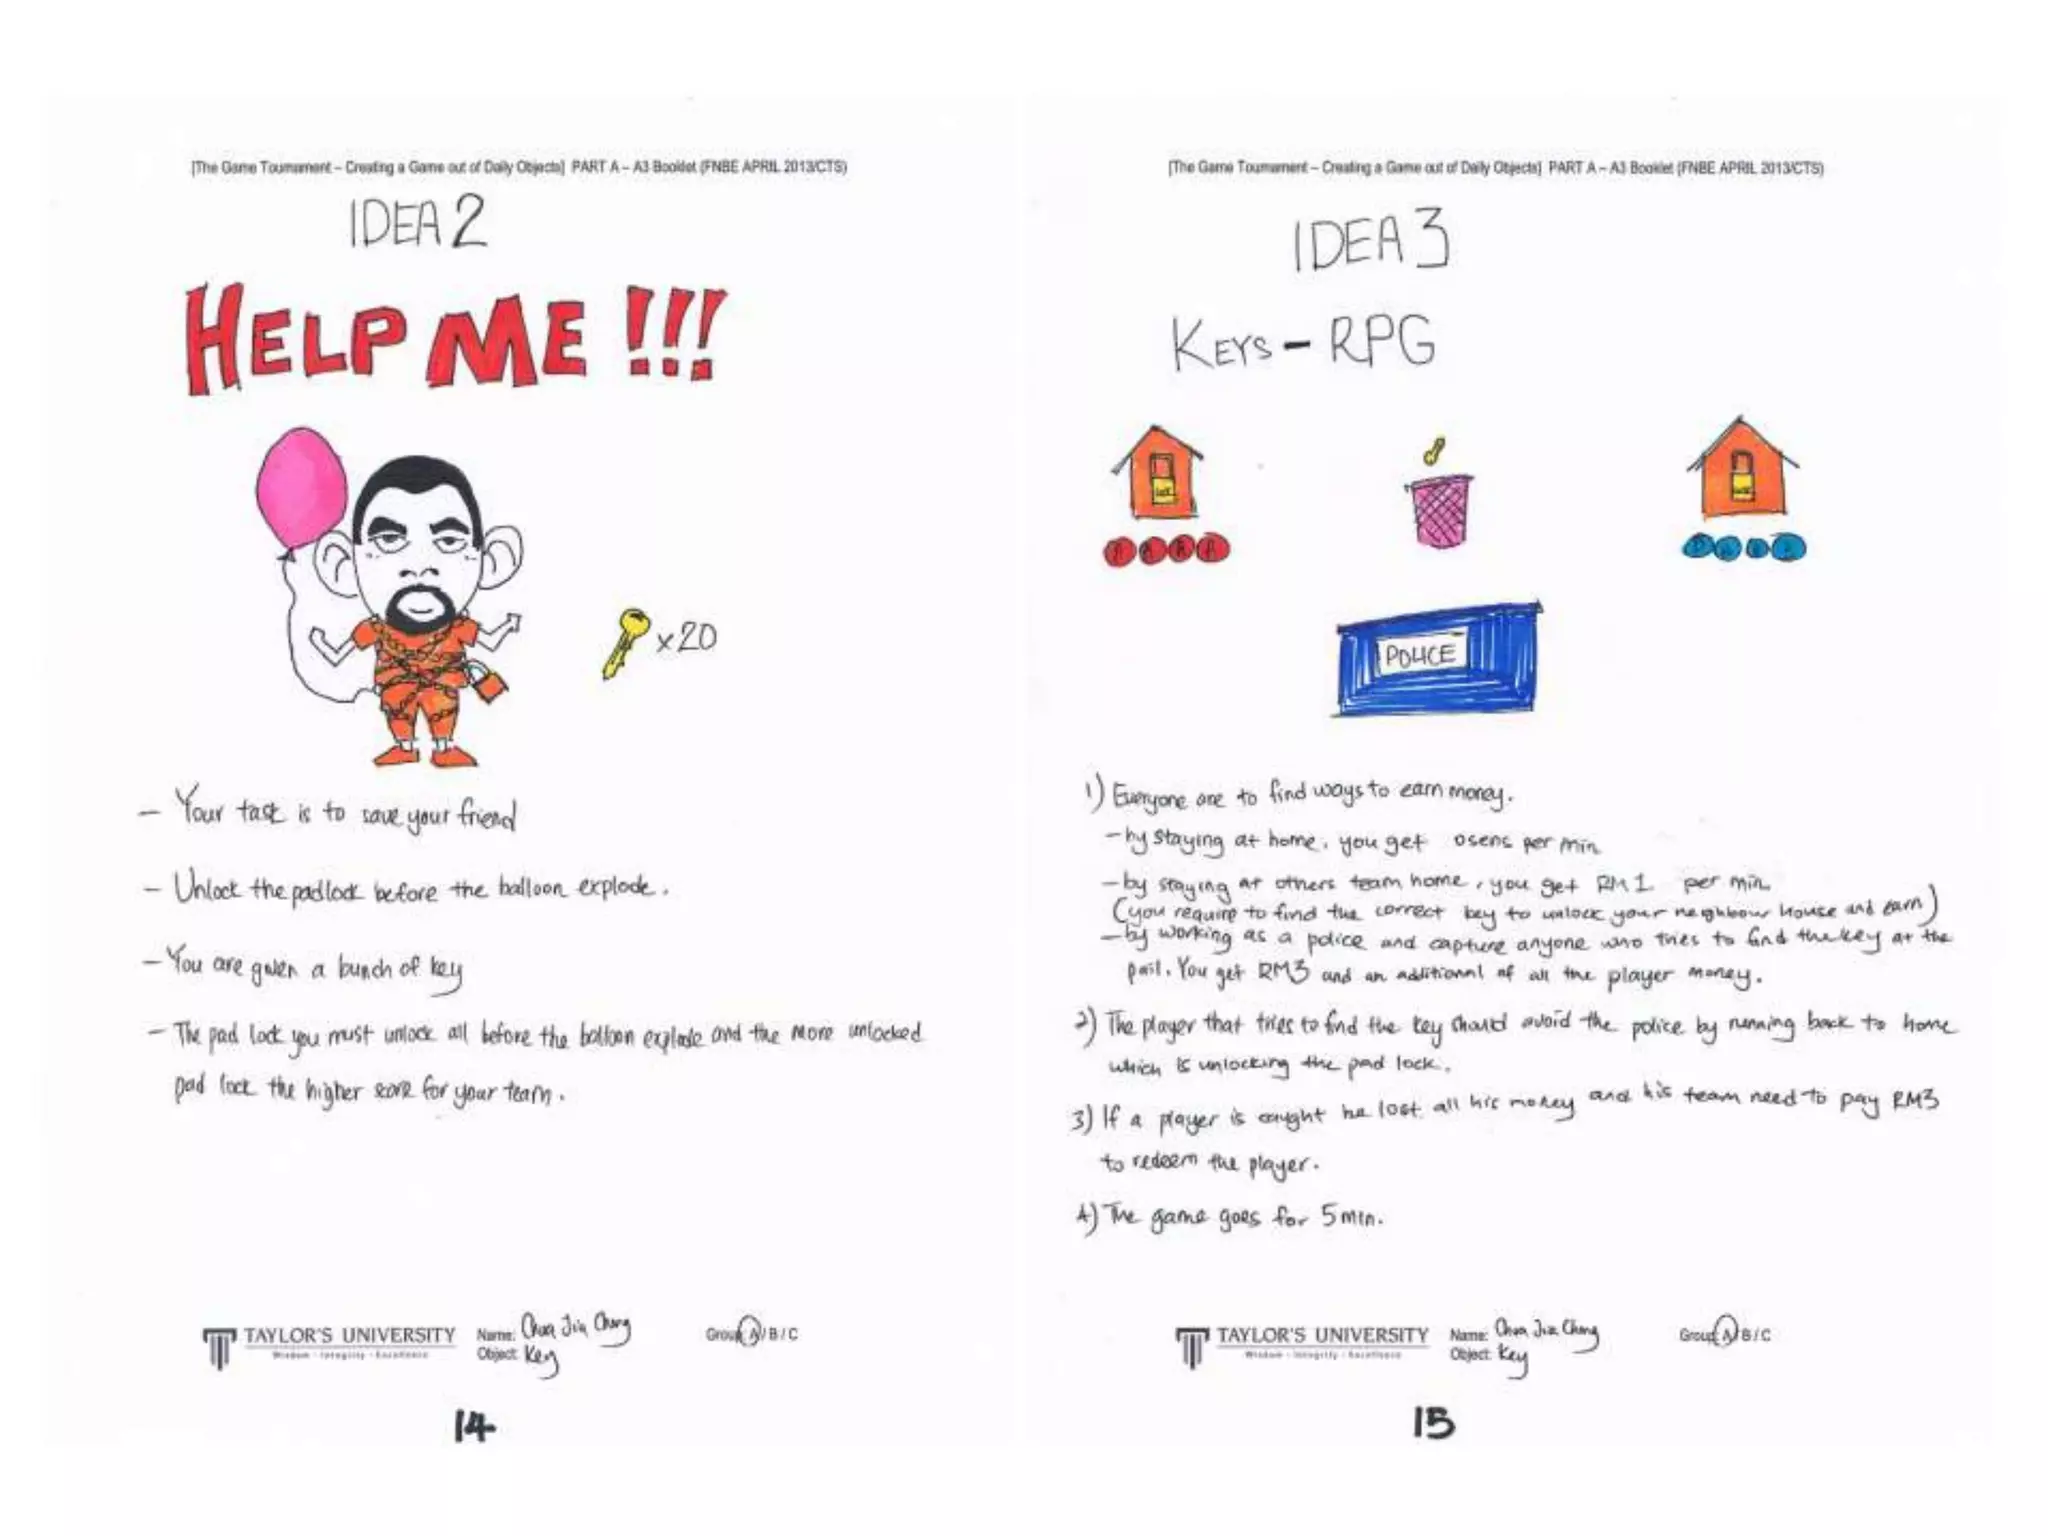 [The Game Tournament – Creating a Game out of Daily Objects] PART A – A3 Booklet (FNBE APRIL 2013/CTS)
IDEA 2
HELP ME !!!
x20
– Your task is to save your friend
– Unlock the padlock before the balloon explode.
– You are given a bunch of key
– The pad lock you must unlock all before the balloon explode and the more unlocked
pad lock the higher score for your team.
TAYLOR'S UNIVERSITY
Wisdom · Integrity · Excellence
Name: Chua Jia Cheng
Object: Key
Group A / B / C
14
[The Game Tournament – Creating a Game out of Daily Objects] PART A – A3 Booklet (FNBE APRIL 2013/CTS)
IDEA 3
KEYS – RPG
POLICE
1) Everyone are to find ways to earn money.
– by staying at home, you get 0sens per min
– by staying at others team home, you get RM 1 per min
(you require to find the correct key to unlock your neighbour house and earn)
– by working as a police and capture anyone who tries to find the key at the
pail. You get RM3 and an additional of all the player money.
2) The player that tries to find the key should avoid the police by running back to home
which is unlocking the pad lock.
3) If a player is caught he lost all his money and his team need to pay RM3
to redeem the player.
4) The game goes for 5 min.
TAYLOR'S UNIVERSITY
Wisdom · Integrity · Excellence
Name: Chua Jia Cheng
Object: Key
Group A / B / C
15